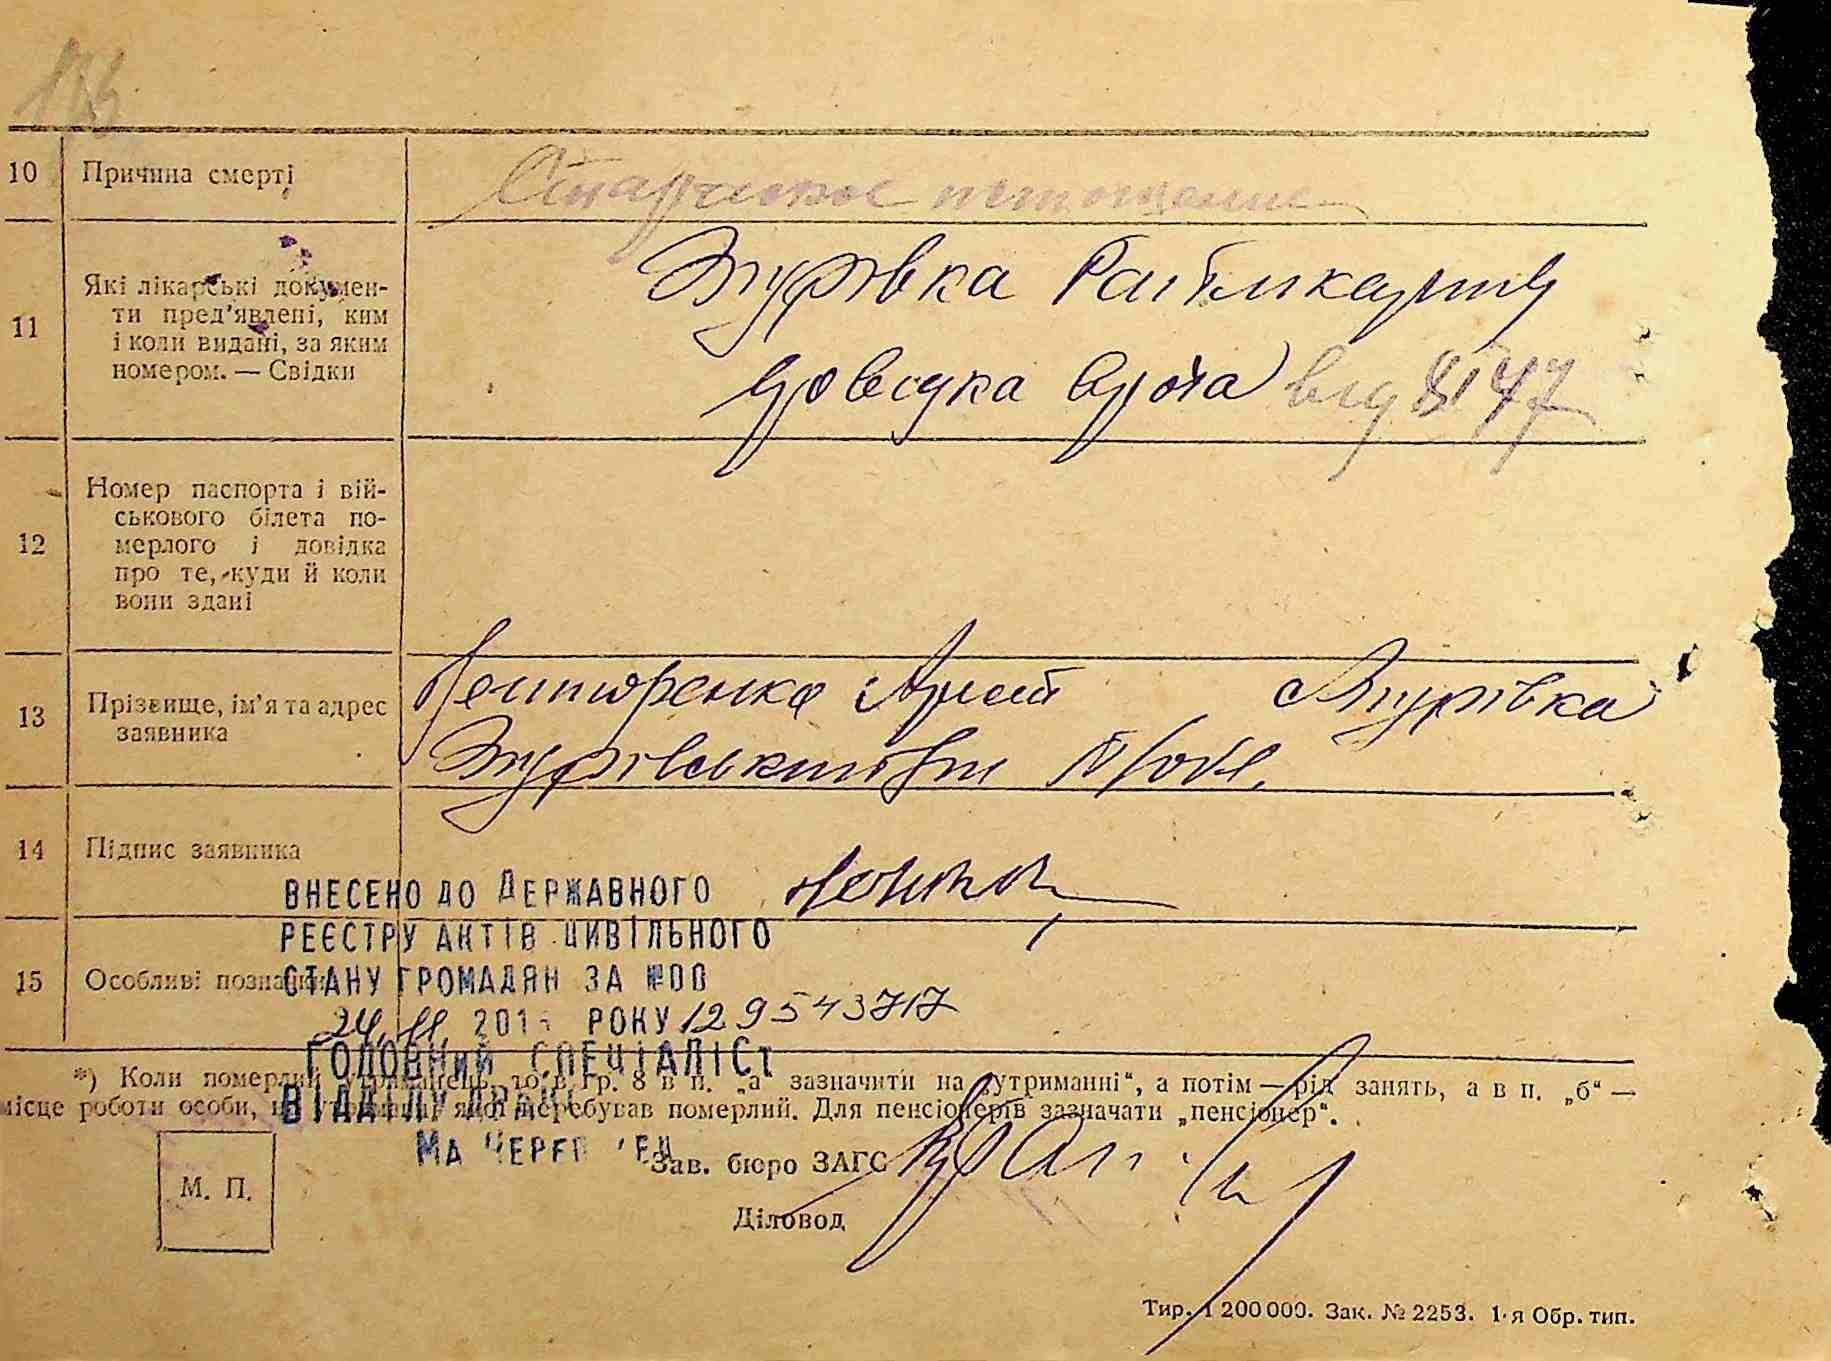 10 Причина смерті
Старческое истощение
11 Які лікарські докумен-
ти пред'явлені, ким
і коли видані, за яким
номером. — Свідки
Згурівка Райлікарня
довідка від 47
12 Номер паспорта і вій-
ськового білета по-
мерлого і довідка
про те, куди й коли
вони здані
13 Прізвище, ім'я та адрес
заявника
Згурівка
Згурівський
14 Підпис заявника
15 Особливі позначки
ВНЕСЕНО ДО ДЕРЖАВНОГО
РЕЄСТРУ АКТІВ ЦИВІЛЬНОГО
СТАНУ ГРОМАДЯН ЗА №00
24.11 201 РОКУ 129543717
ГОЛОВНИЙ СПЕЦІАЛІСТ
ВІДДІЛУ ДРАЦС
*) Коли померлий утриманець, то в гр. 8 в п. „а" зазначити на „утриманні", а потім — рід занять, а в п. „б" —
місце роботи особи, на утриманні якої перебував померлий. Для пенсіонерів зазначати „пенсіонер".
М. П.
Зав. бюро ЗАГС
Діловод
Тир. 1 200 000. Зак. № 2253. 1-я Обр. тип.